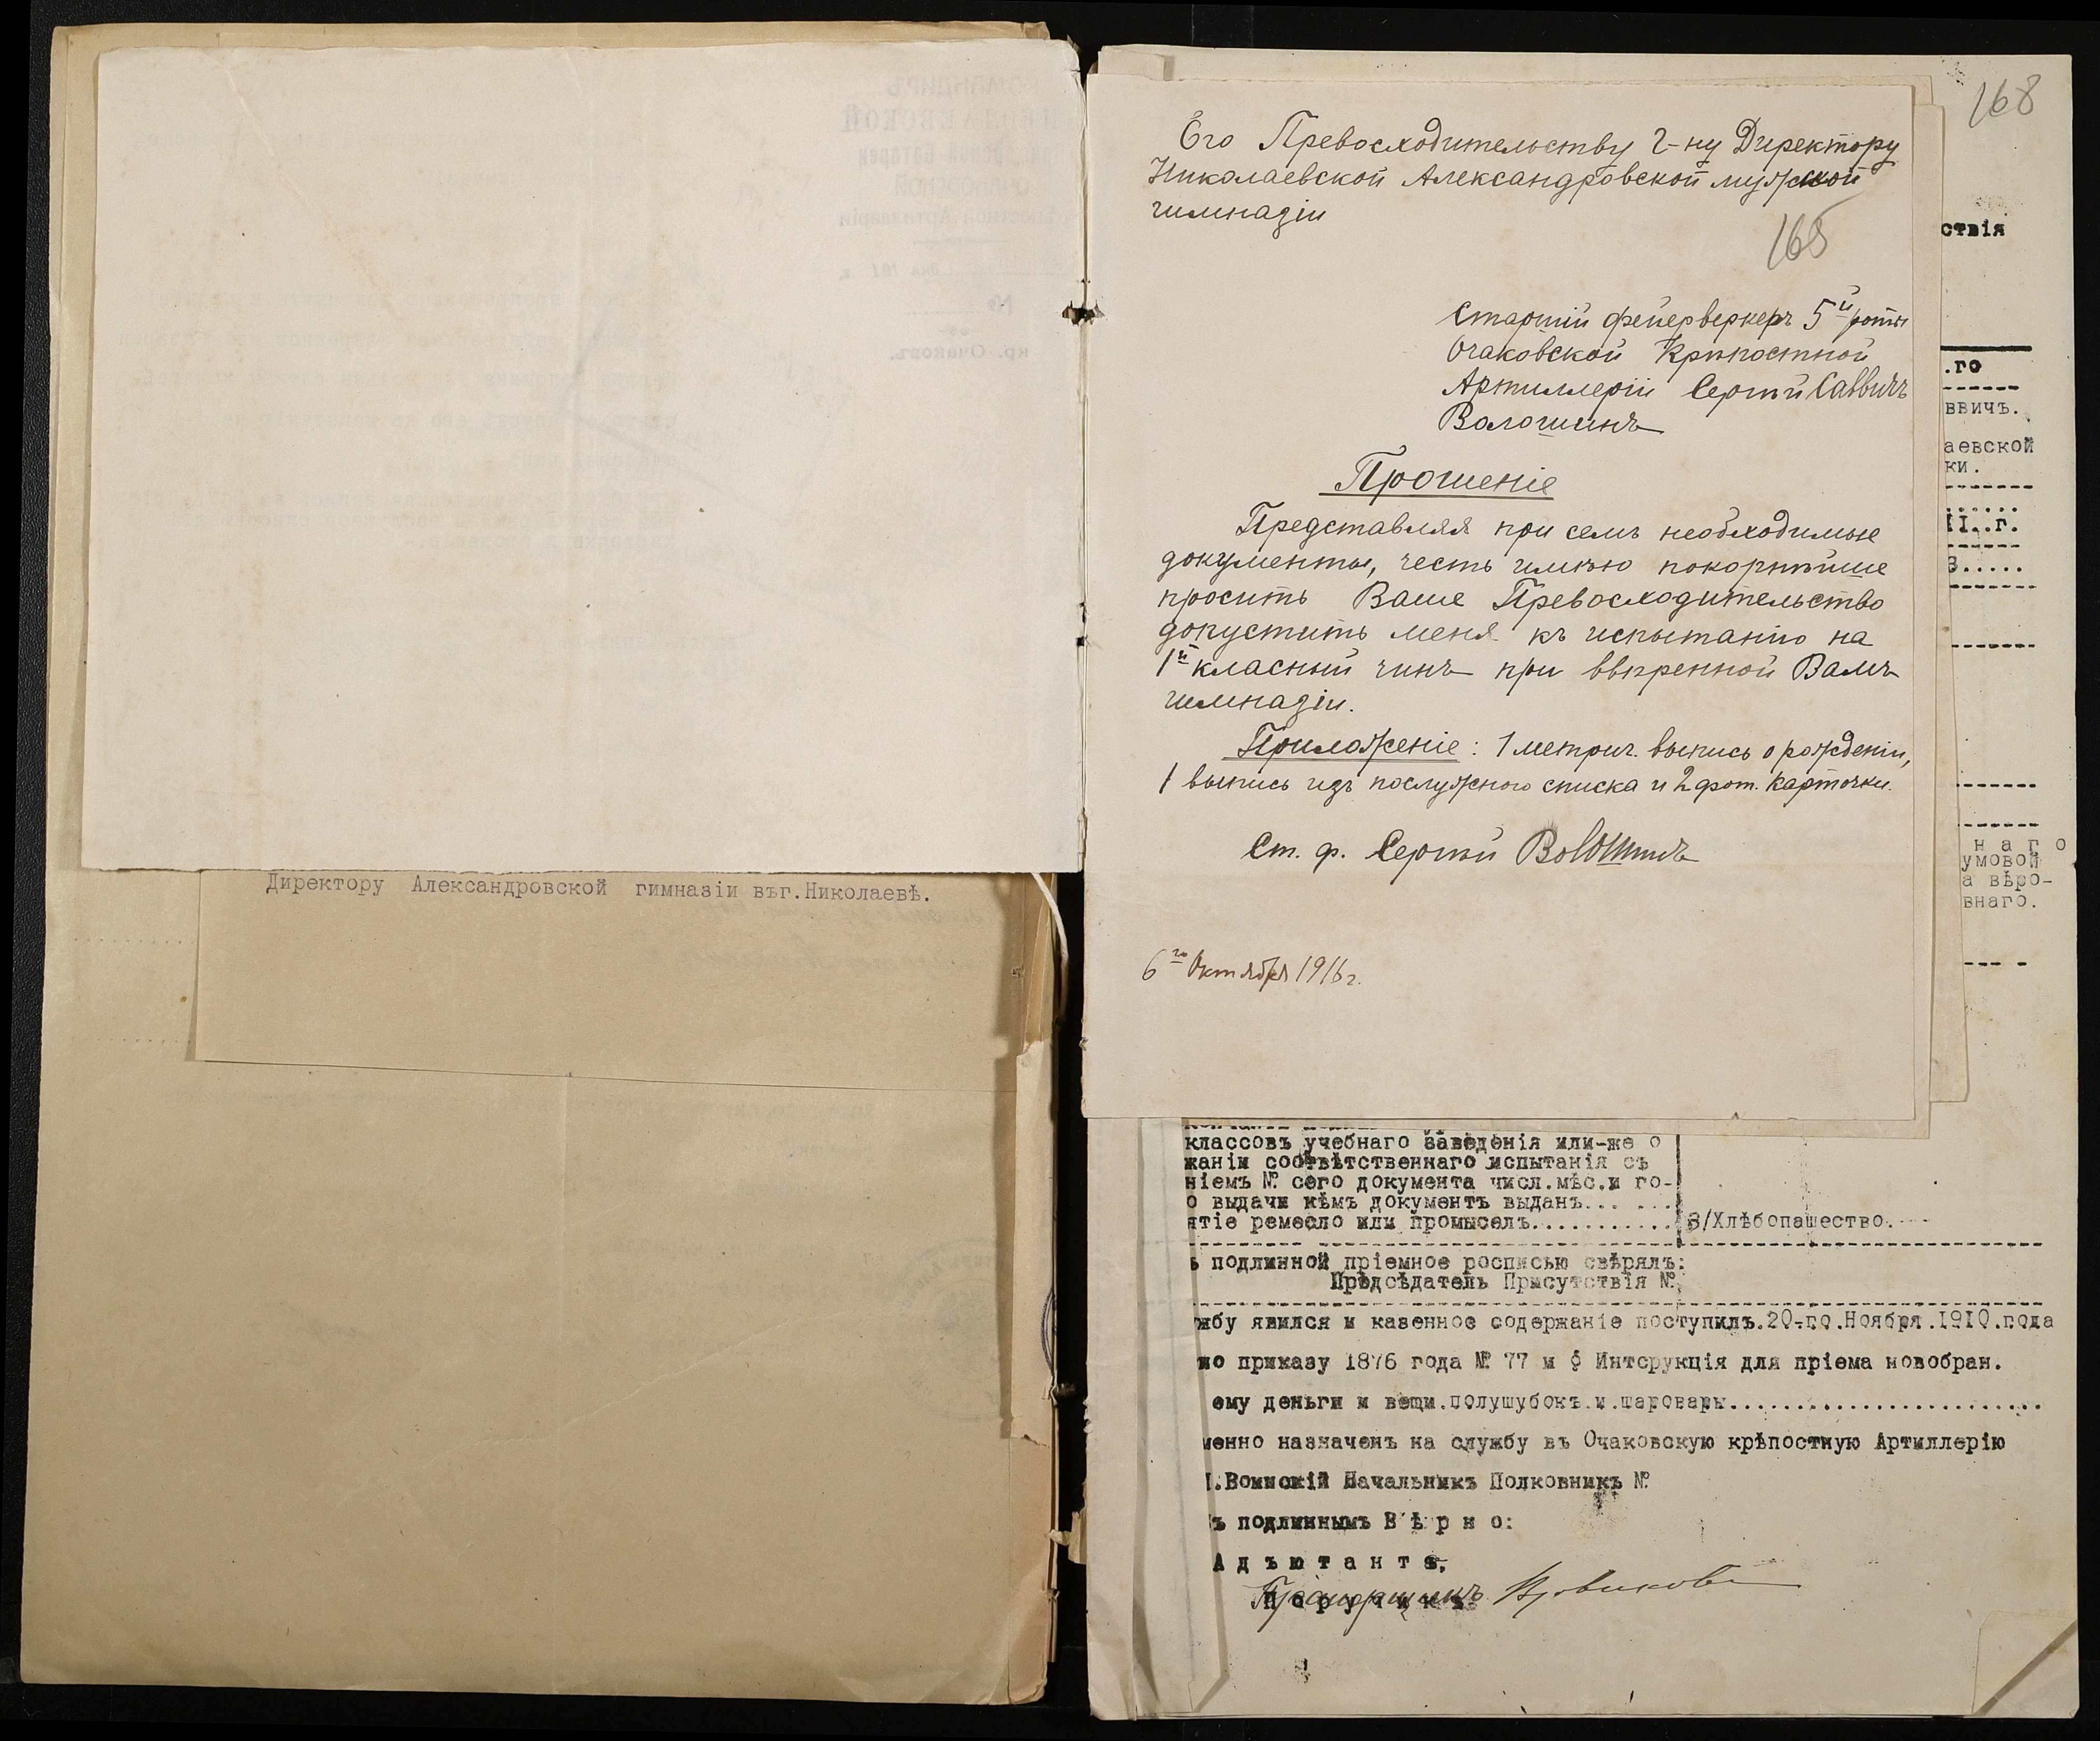 Директору Александровской гимназіи въг.Николаевѣ.
168
Его Превосходительству Г-ну Директору
Николаевской Александровской мужской
гимназіи
165
Старшій фейерверкеръ 5й роты
Очаковской Крѣпостной
Артиллеріи Сергѣй Саввичъ
Волошинъ
Прошеніе
Представляя при семъ необходимые
документы, честь имѣю покорнѣйше
просить Ваше Превосходительство
допустить меня къ испытанію на
1й класный чинъ при ввѣренной Вамъ
гимназіи.
Приложеніе: 1 метрич. выпись о рожденіи,
1 выпись изъ послужного списка и 2 фот. карточки.
Ст. ф. Сергѣй Волошинъ
6го Октября 1916 г.
ствія
.го
ввичъ.
аевской
ки.
II..г.
В.....
наго
умовой
а вѣро-
внаго.
классовъ учебнаго заведенія или-же о
жаніи соотвѣтственнаго испытанія съ
ніемъ № сего документа числ.мѣс.и го-
о выдачи кѣмъ документъ выданъ... ...
ятіе ремесло или промыселъ........... З/Хлѣбопашество.
ь подлинной пріемное росписью свѣрялъ:
Предсѣдатель Присутствія №
жбу явился и казенное содержаніе поступилъ.20-го.Ноября.1910.года
но приказу 1876 года № 77 и ф Интсрукція для пріема новобран.
ему деньги и вещи.полушубокъ.и.шаровары.......................
менно назначенъ на службу въ Очаковскую крѣпостную Артиллерію
.Воинскій Начальникъ Полковникъ №
ъ подлиннымъ Вѣрно:
Адъютантъ,
Прапорщикъ
Поручикъ